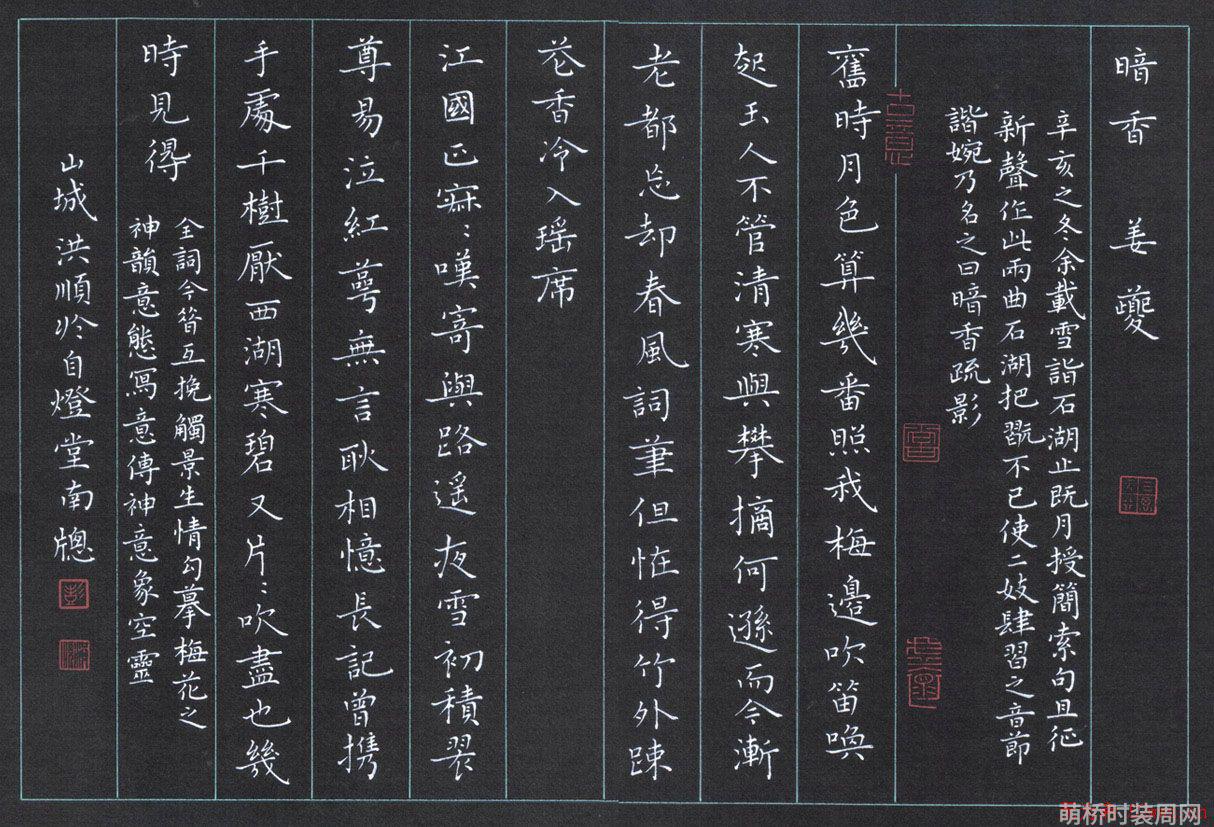 暗香 姜夔
辛亥之冬余載雪詣石湖止既月授簡索句且征
新聲作此兩曲石湖把翫不已使二妓肆習之音節
諧婉乃名之曰暗香疏影
舊時月色算幾番照我梅邊吹笛喚
起玉人不管清寒與攀摘何遜而今漸
老都忘却春風詞筆但恠得竹外疎
花香冷入瑶席
江國正寂：嘆寄與路遥夜雪初積翠
尊易泣紅萼無言耿相憶長記曾携
手處千樹壓西湖寒碧又片：吹盡也幾
時見得
全詞今昔互挽觸景生情勾摹梅花之
神韻意態寫意傳神意象空靈
山城洪順於自燈堂南牕
古意
萌桥时装周网